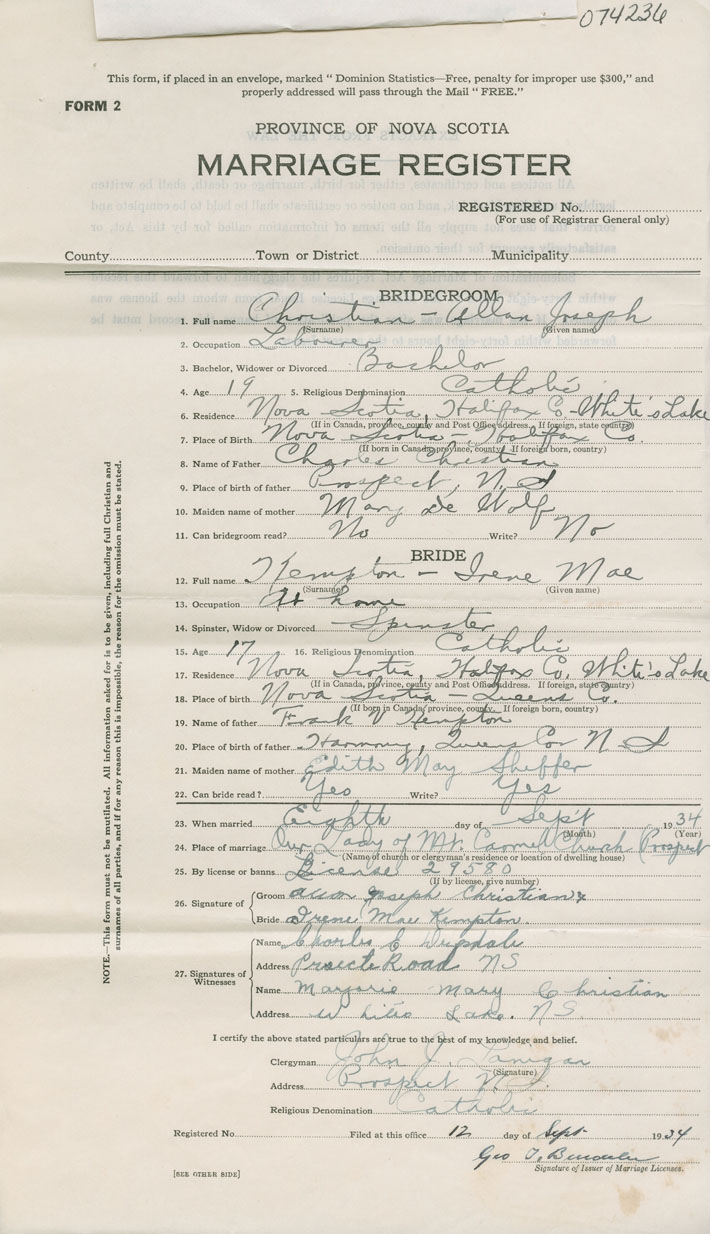 074236
This form, if placed in an envelope, marked " Dominion Statistics—Free, penalty for improper use $300," and
properly addressed will pass through the Mail " FREE."
FORM 2
PROVINCE OF NOVA SCOTIA
MARRIAGE REGISTER
REGISTERED No.
(For use of Registrar General only)
County Town or District Municipality
BRIDEGROOM
1. Full name Christian - Allan Joseph
(Surname) (Given name)
2. Occupation Labourer
3. Bachelor, Widower or Divorced Bachelor
4. Age 19 5. Religious Denomination Catholic
6. Residence Nova Scotia, Halifax Co - White's Lake
(If in Canada, province, county and Post Office address. If foreign, state country)
7. Place of Birth Nova Scotia - Halifax Co.
(If born in Canada, province, county. If foreign born, country)
8. Name of Father Charles Christian
9. Place of birth of father Prospect, N.S
10. Maiden name of mother Mary De Wolf
11. Can bridegroom read? No Write? No
BRIDE
12. Full name Kempton - Irene Mae
(Surname) (Given name)
13. Occupation At home
14. Spinster, Widow or Divorced Spinster
15. Age 17 16. Religious Denomination Catholic
17. Residence Nova Scotia, Halifax Co. White's Lake
(If in Canada, province, county and Post Office address. If foreign, state country)
18. Place of birth Nova Scotia - Queens Co.
(If born in Canada, province, county. If foreign born, country)
19. Name of father Frank V Kempton
20. Place of birth of father Harmony, Queens Co N S
21. Maiden name of mother Edith May Sheffer
22. Can bride read? Yes Write? Yes
23. When married Eighth day of Sept 1934
(Month) (Year)
24. Place of marriage Our Lady of Mt. Carmel Church Prospect
(Name of church or clergyman's residence or location of dwelling house)
25. By license or banns License 29580
(If by license, give number)
26. Signature of
Groom Joseph Christian
Bride Irene Mae Kempton
27. Signatures of Witnesses
Name Charles E
Address Road NS
Name Marjorie Mary Christian
Address Whites Lake. NS.
I certify the above stated particulars are true to the best of my knowledge and belief.
Clergyman John J. Lanigan
(Signature)
Address Prospect N.S.
Religious Denomination Catholic
Registered No. Filed at this office 12 day of Sept 1934
Geo T.
Signature of Issuer of Marriage Licenses.
[SEE OTHER SIDE]
NOTE.—This form must not be mutilated. All information asked for is to be given, including full Christian and
surnames of all parties, and if for any reason this is impossible, the reason for the omission must be stated.